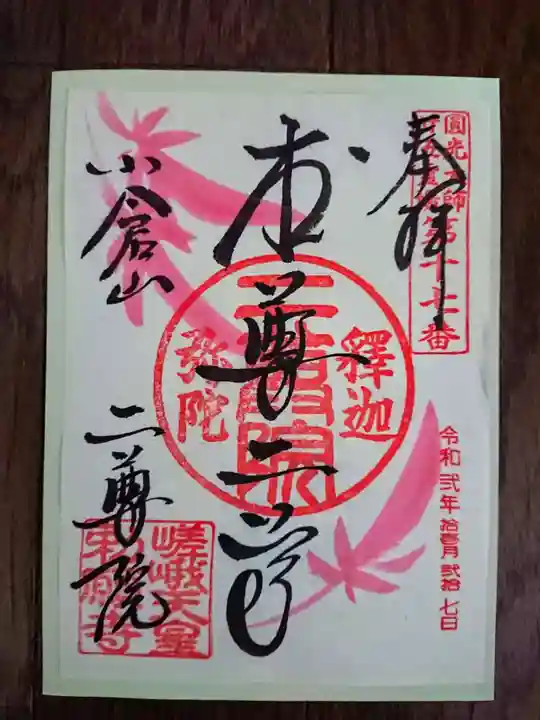 奉拝
圓光大師
第十七番
本尊二尊
釋迦
二尊院
弥陀
令和弐年拾壱月弐拾七日
小倉山
二尊院
嵯峨天皇